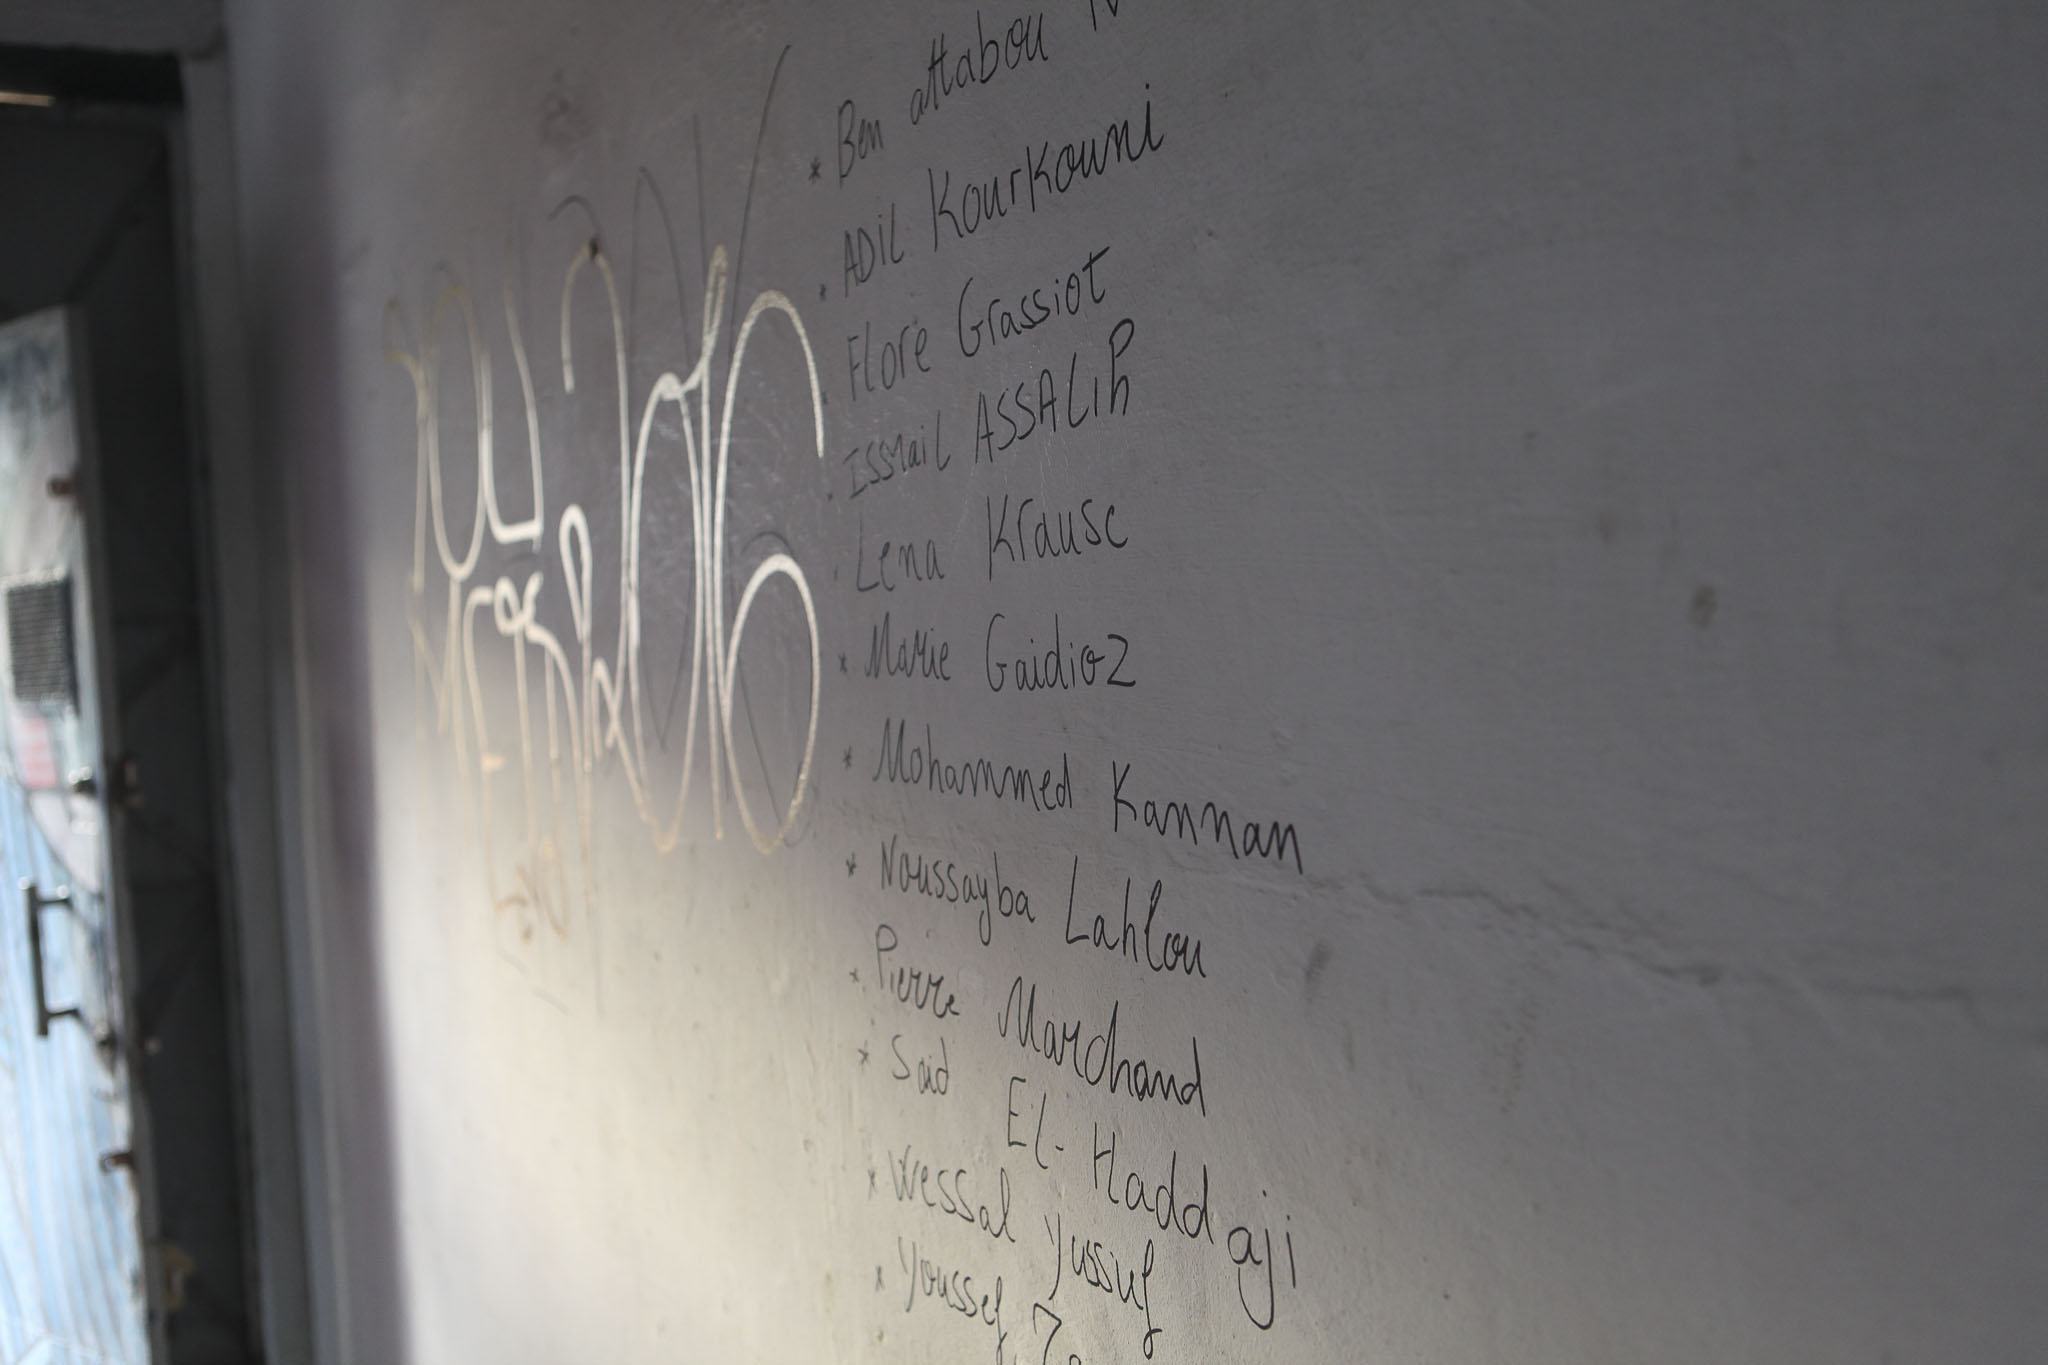 * Ben attabou
* ADIL KourKouni
* Flore Grassiot
* ISSMaiL ASSALIh
* Lena Krause
* Marie Gaidioz
* Mohammed Kannan
* Noussayba Lahlou
* Pierre Marchand
* Said El-Haddaji
* Wessal Yussuf
* Youssef